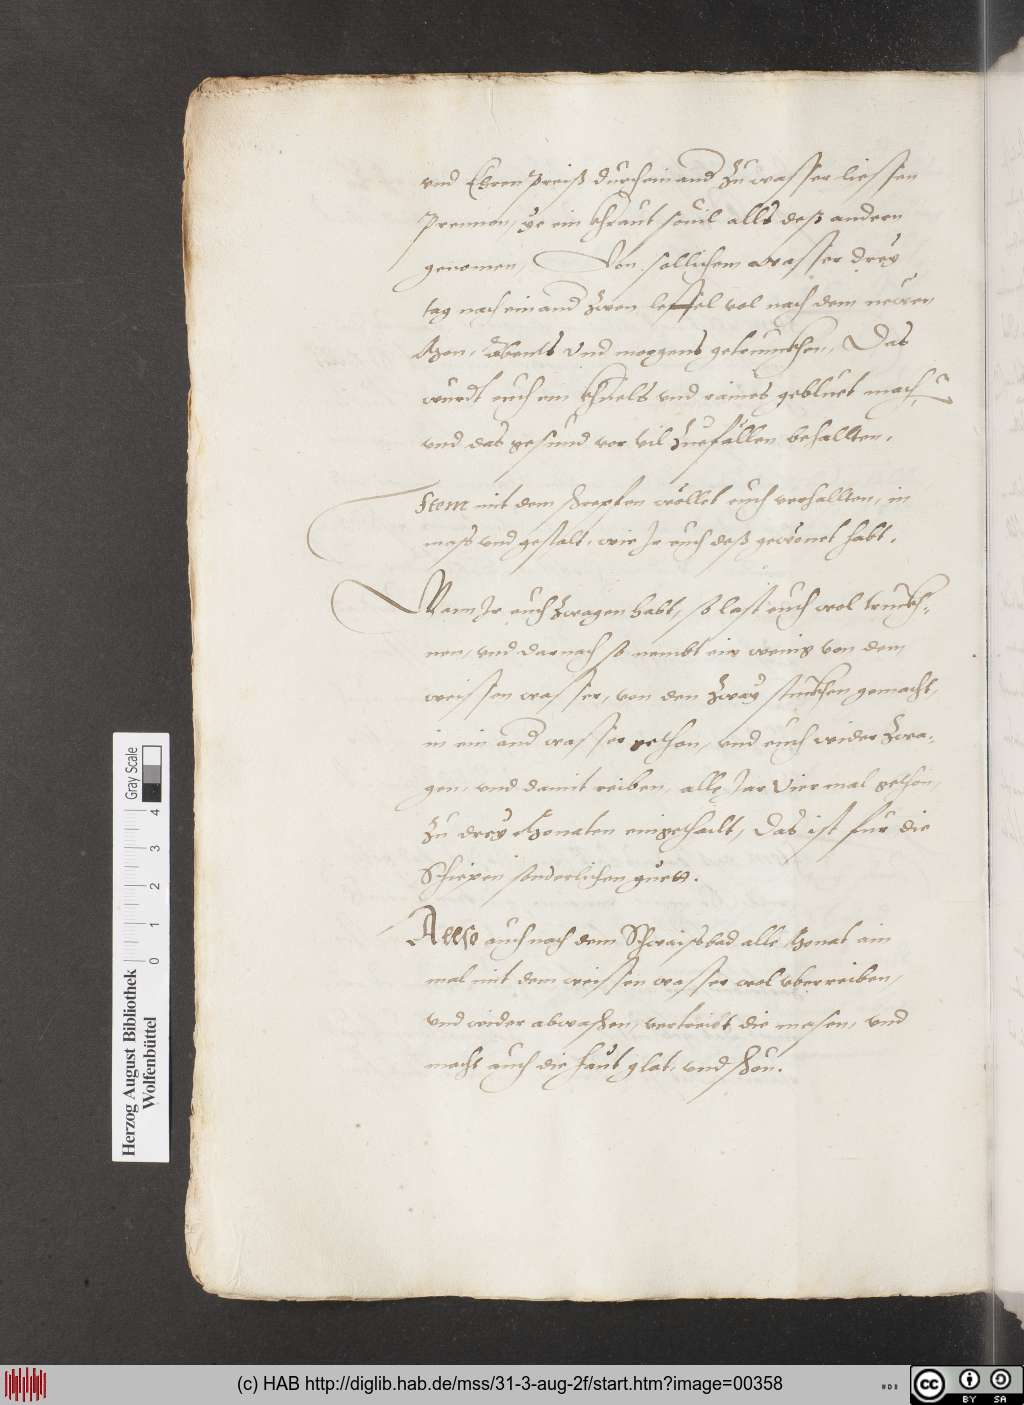 vnd Ehren Preiß durcheinand zu wasser liessen
Prennen, ye ein khraut souil alls deß andern
genomen, Von sollichem wasser drey
tag nach einand zwen leffel vol nach dem newen
Mon, Abents vnd morgens getrunckhen, Das
wurdt euch ein khüels vnd raines gebluet mach
vnd das gesund vor vil zuefällen behallten.
Item mit dem wöllet euch verhallten, in
mass vnd gestalt, wie Jr euch deß gewonet habt.
Wann Jr euch zwagen habt, so last euch wol truckh-
nen, vnd darnach so nembt ein wenig von dem
weissen wasser, von den zway stuckhen gemacht,
in ein and wasser gethon, vnd euch wider zwa-
gen, vnd damit reiben, alle Jar Viermal gethon,
zu drey Monaten eingethailt, Das ist für die
Schiepen sonderlichen guett.
Allso auch nach dem Schwaissbad alle Monat ain
mal mit dem weissen wasser wol vberreiben,
vnd wider abwaschen, vertreibt die masen, vnd
macht auch die haut glat, vnd schön.
Herzog August Bibliothek
Wolfenbüttel
Gray Scale
0 1 2 3 4
(c) HAB http://diglib.hab.de/mss/31-3-aug-2f/start.htm?image=00358
cc BY SA